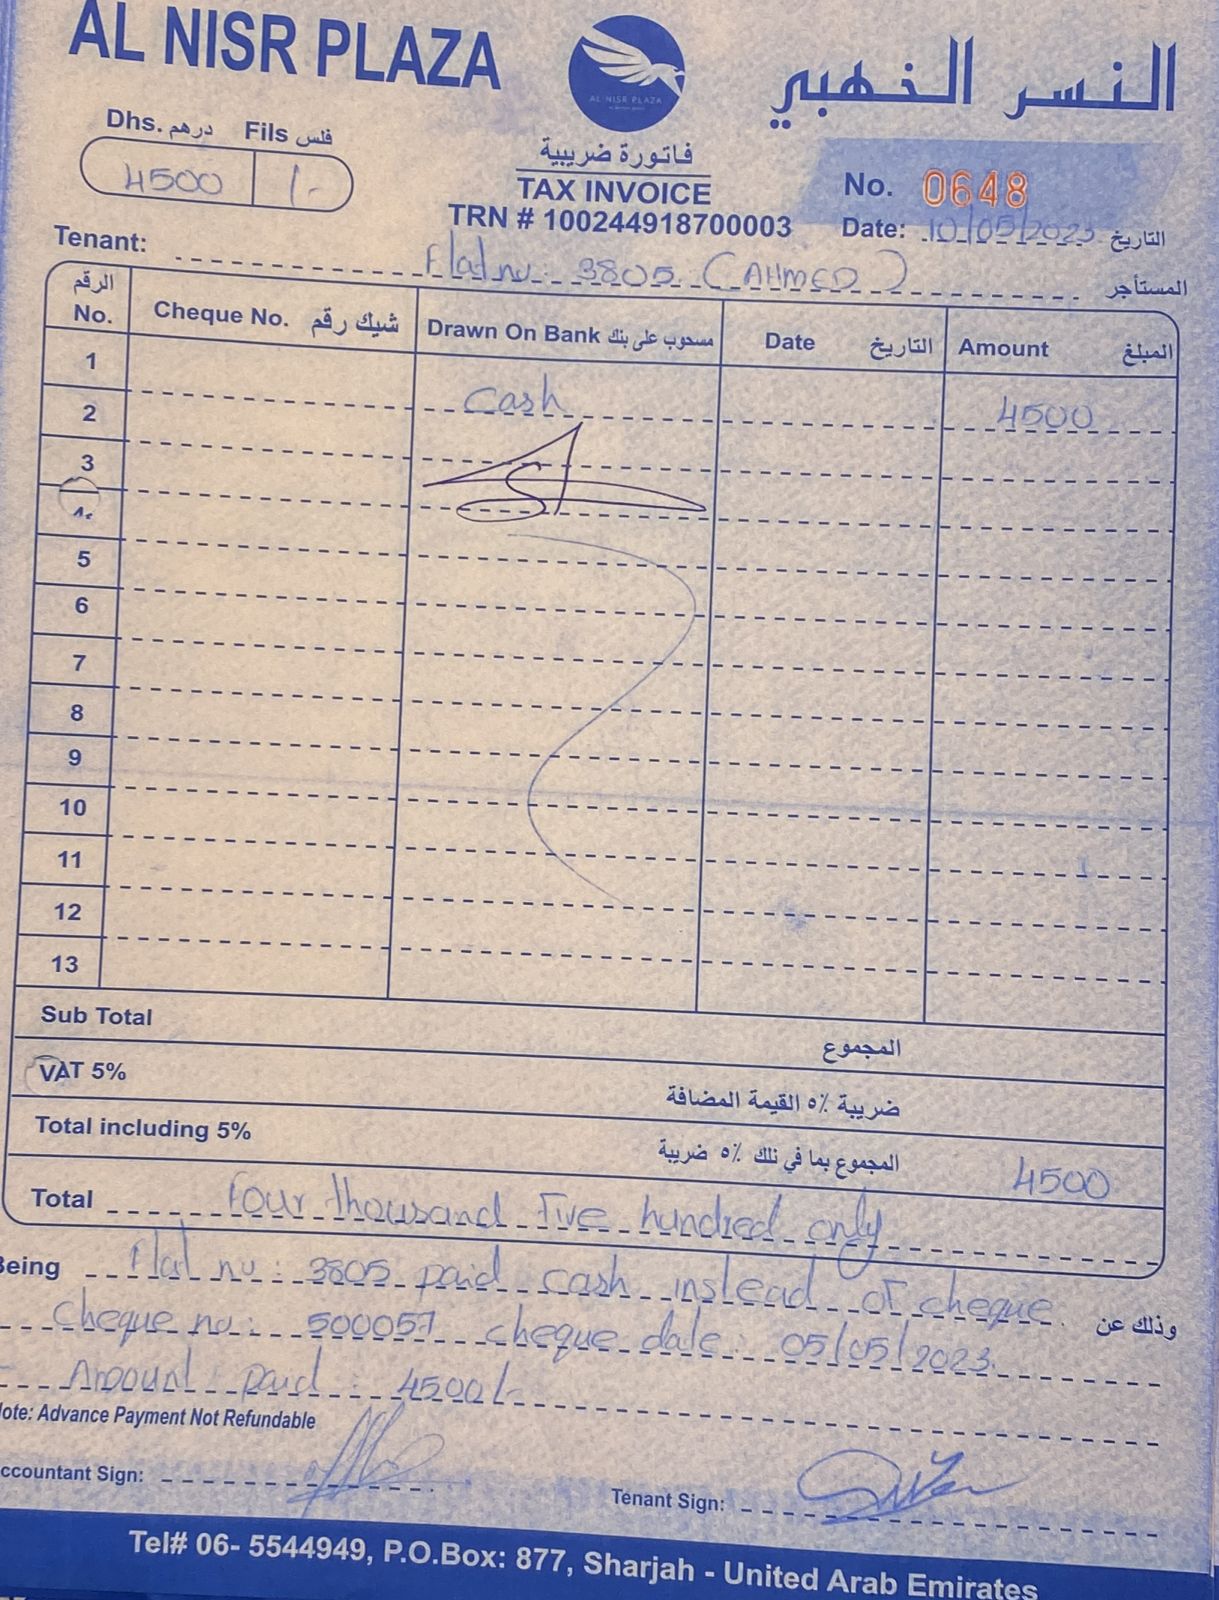 AL NISR PLAZA
النسر الذهبي
AL NISR PLAZA
Dhs. درهم Fils فلس
4500 /-
فاتورة ضريبية
TAX INVOICE
TRN # 100244918700003
No. 0648
Date: 10/05/2023 التاريخ
Tenant: Flat no: 3805 (AHMED) المستأجر
الرقم No. Cheque No. شيك رقم Drawn On Bank مسحوب على بنك Date التاريخ Amount المبلغ
1
2 Cash 4500
3
4
5
6
7
8
9
10
11
12
13
Sub Total المجموع
VAT 5% ضريبة ٥٪ القيمة المضافة
Total including 5% المجموع بما في ذلك ٥٪ ضريبة 4500
Total Four thousand Five hundred only
Being Flat no: 3805 paid cash instead of cheque. وذلك عن
Cheque no: 500057 cheque date: 05/05/2023.
Amount paid: 4500/-
Note: Advance Payment Not Refundable
Accountant Sign: Tenant Sign:
Tel# 06- 5544949, P.O.Box: 877, Sharjah - United Arab Emirates